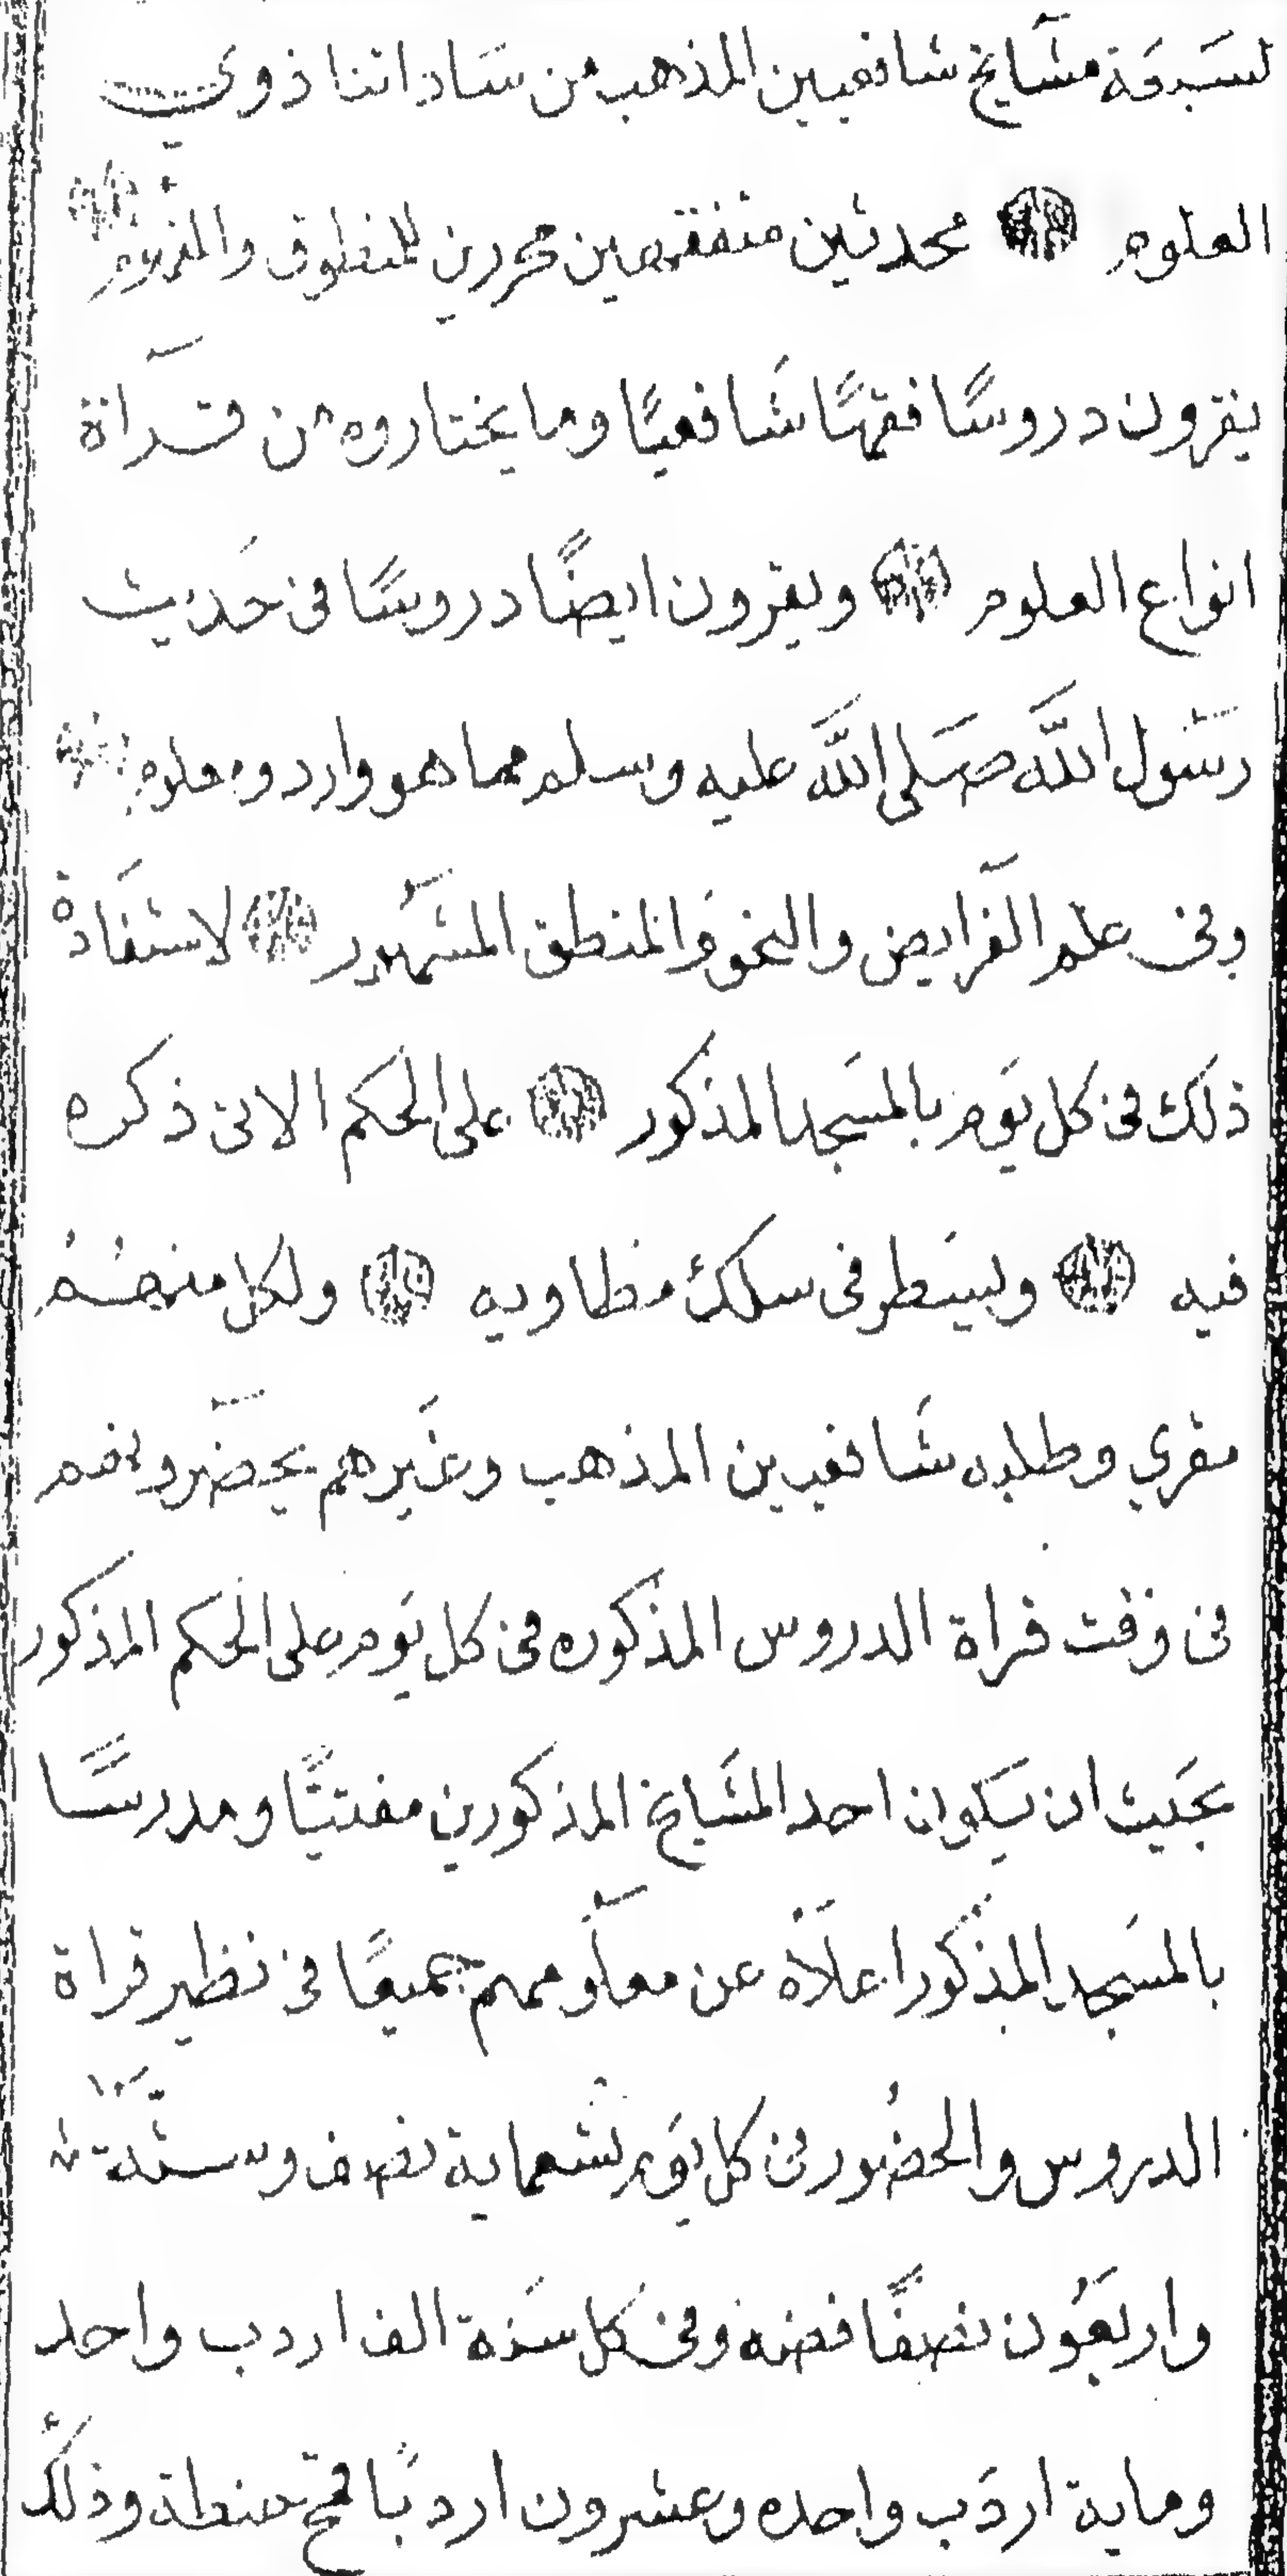 لسَبعَة مشَايخ شافعيين المذهب من سَاداتنا ذوي
العلوم محدثين متفقهين محررين للمنطوق والمفهوم
يقرون دروسًا فقهًا شَافعيًا وما يختاروه من قرَاة
انواع العلوم ويقرون ايضًا دروسًا فى حَديث
رسَول اللَّه صَلى اللَّه عليه وسلم مما هو وارد ومعلوم
وفى علم الفَرايض والنحو وَالمنطق المشهُور لاستفَادة
ذلك فى كل يَوم بالمسَجد المذكور على الحكم الاتى ذكره
فيه ويسَطر فى سلك مطاويه ولكل منهُمُ
مقري وطلبه شَافعيين المذهب وغَيرهم يحضَرونهم
فى وقت قراة الدروس المذكوره فى كل يَوم على الحكم المذكور
بحَيث ان يَكون احد المشَايخ المذكورين مفتيًا ومدرسًا
بالمسَجد المذكور اعلاَه عن معلَومهم جميعًا فى نظير قراة
الدروس والحضُور فى كل يَوم تسَعماية نصف وستَّة
واربعَون نصفًا فضه وفى كل سَنة الف اردب واحد
وماية اردَب واحده وعشرون اردبًا قمح حنطة وذلك